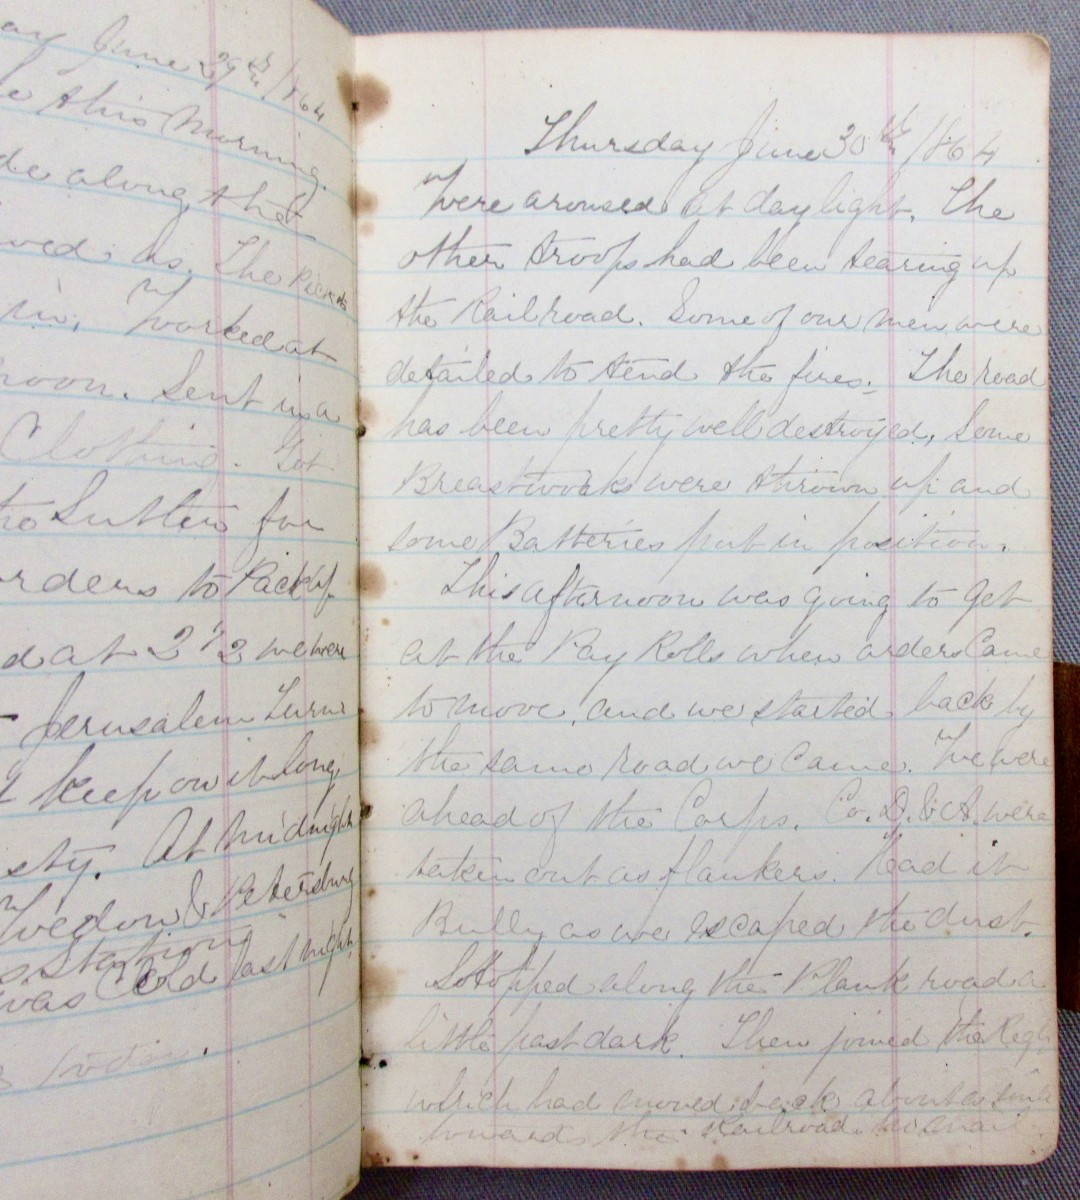 ay June 29th/1864
this Morning.
de along the
ved us. The Pickets
in. Worked at
noon. Sent in a
Clothing. Got
the Sutler for
orders to Pack up
d at 2 1/2 we were
Jerusalem
keep on it long,
sty. At midnight
& Petersburg
Station
was Cold last night.
today.
Thursday June 30th/1864
Were aroused at day light. The
other troops had been tearing up
the Railroad. Some of our men were
detailed to tend the fires. The road
has been pretty well destroyed, Some
Breastworks were thrown up and
some Batteries put in position.
This afternoon was going to get
at the Pay Rolls when orders Came
to move, and we started back by
the same road we Came. We were
ahead of the Corps. Co. D. & A. were
taken out as flankers. Had it
Bully as we escaped the dust.
Stopped along the Plank road a
little past dark. Then joined the Regt
which had moved back about a mile
towards the Railroad. No mail